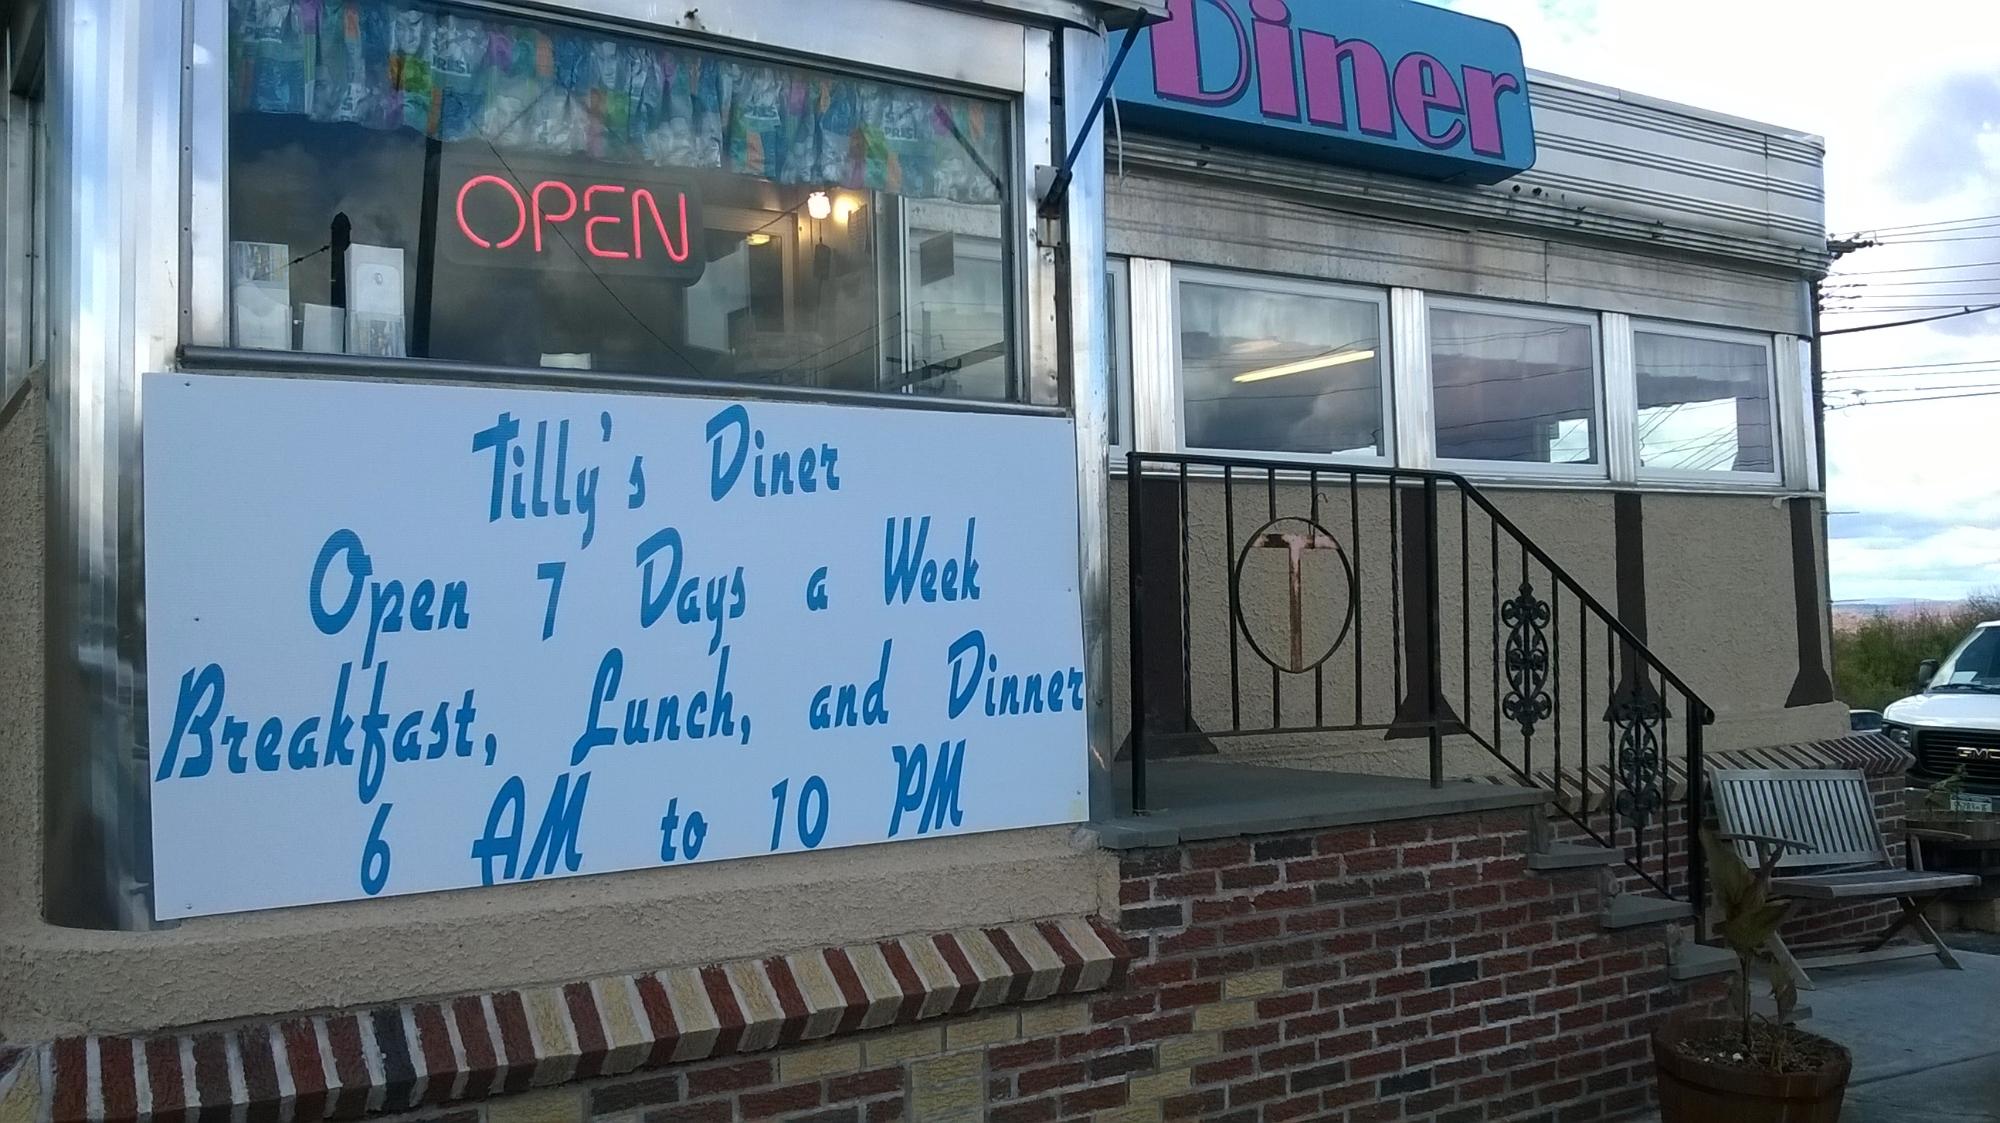 Diner
OPEN
Tilly's Diner
Open 7 Days a Week
Breakfast, Lunch, and Dinner
6 AM to 10 PM
T
GMC